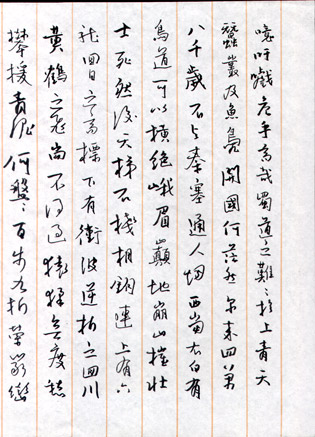 噫吁戲危乎高哉蜀道之難〻於上青天
蠶叢及魚鳧開國何茫然尔来四萬
八千歲不与秦塞通人烟西當太白有
鳥道可以橫絕峨眉巔地崩山摧壯
士死然後天梯石棧相鉤連上有六
龍回日之高標下有衝波逆折之回川
黃鶴之飛尚不得過猿猱欲度愁
攀援青泥何盤〻百步九折縈巖巒